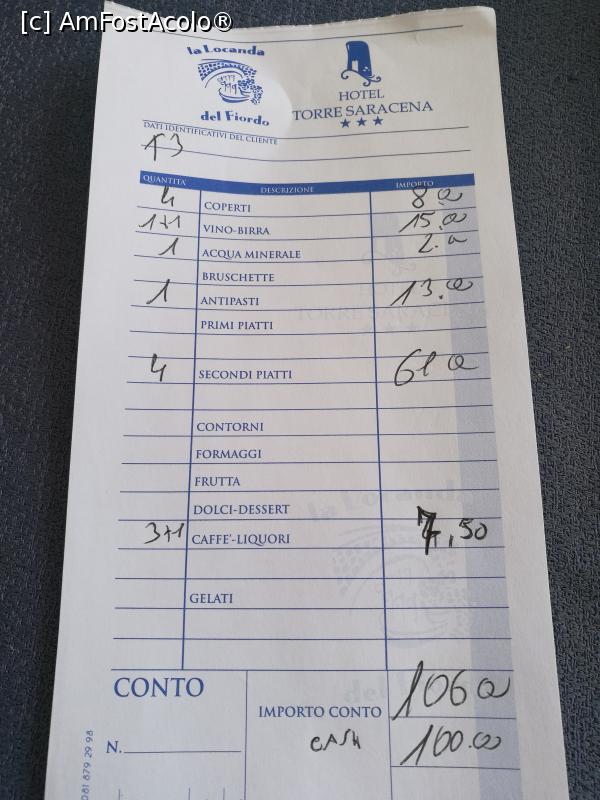 [c] AmFostAcolo®
la Locanda
del Fiordo
HOTEL
TORRE SARACENA
★★★
DATI IDENTIFICATIVI DEL CLIENTE
QUANTITA' DESCRIZIONE IMPORTO
4 COPERTI 8.00
1+1 VINO-BIRRA 15.00
1 ACQUA MINERALE 2.00
BRUSCHETTE
1 ANTIPASTI 13.00
PRIMI PIATTI
4 SECONDI PIATTI 61 00
CONTORNI
FORMAGGI
FRUTTA
DOLCI-DESSERT
3+1 CAFFE'-LIQUORI 7,50
GELATI
CONTO
IMPORTO CONTO 106 00
CASH 100.00
N.
081 879 29 98